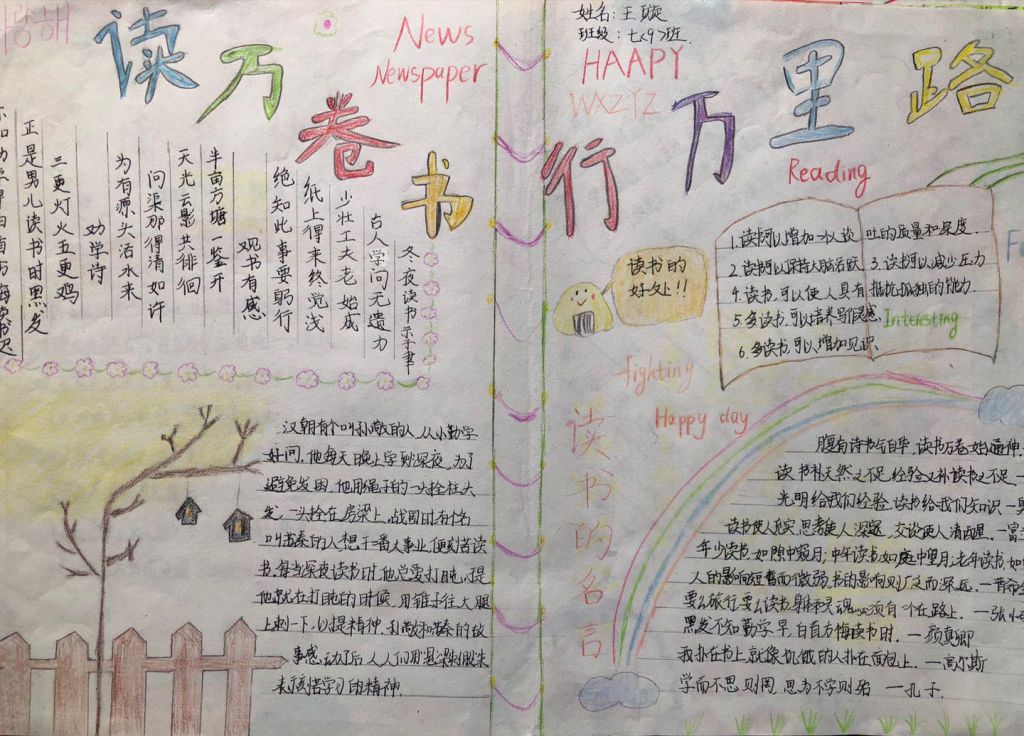 사랑해
读万卷书
News
Newspaper
冬夜读书示子聿
古人学问无遗力
少壮工夫老始成
纸上得来终觉浅
绝知此事要躬行
观书有感
半亩方塘一鉴开
天光云影共徘徊
问渠那得清如许
为有源头活水来
劝学诗
三更灯火五更鸡
正是男儿读书时黑发
不知勤学早白首方悔读书迟
汉朝有个叫孙敬的人,从小勤学
好问,他每天晚上学到深夜,为了
避免发困,他用绳子的一头拴住头
发,一头拴在房梁上,战国时有个名
叫苏秦的人想干一番大事业,便刻苦读
书,每当深夜读书时,他总要打盹,于是
他就在打盹的时候,用锥子往大腿
上刺一下,以提精神,孙敬和苏秦的故
事感动了后人,人们用悬梁刺股来
表示刻苦学习的精神.
姓名:王璇
班级:七<9>班.
HAAPY
WXZYZ
行万里路
Reading
读书的
好处!!
1.读书可以增加一个人谈吐的质量和深度.
2.读书可以保持大脑活跃. 3.读书可以减少压力
4.读书可以使人具有抵抗孤独的能力
5.多读书,可以培养写作灵感.
Interesting
6.多读书,可以增加见识.
fighting
Happy day
读书的名言
腹有诗书气自华,读书万卷始通神.
读书补天然之不足,经验又补读书之不足
光明给我们经验,读书给我们知识
读书使人充实,思考使人深邃,交谈使人清醒.
年少读书,如隙中窥月;中年读书,如庭中望月;老年读书,如
人的影响短暂而微弱,书的影响则广泛而深远.
要么旅行,要么读书,身体和灵魂,必须有一个在路上.
黑发不知勤学早,白首方悔读书时. —颜真卿
我扑在书上,就像饥饿的人扑在面包上. —高尔斯
学而不思则罔,思而不学则殆 —孔子.